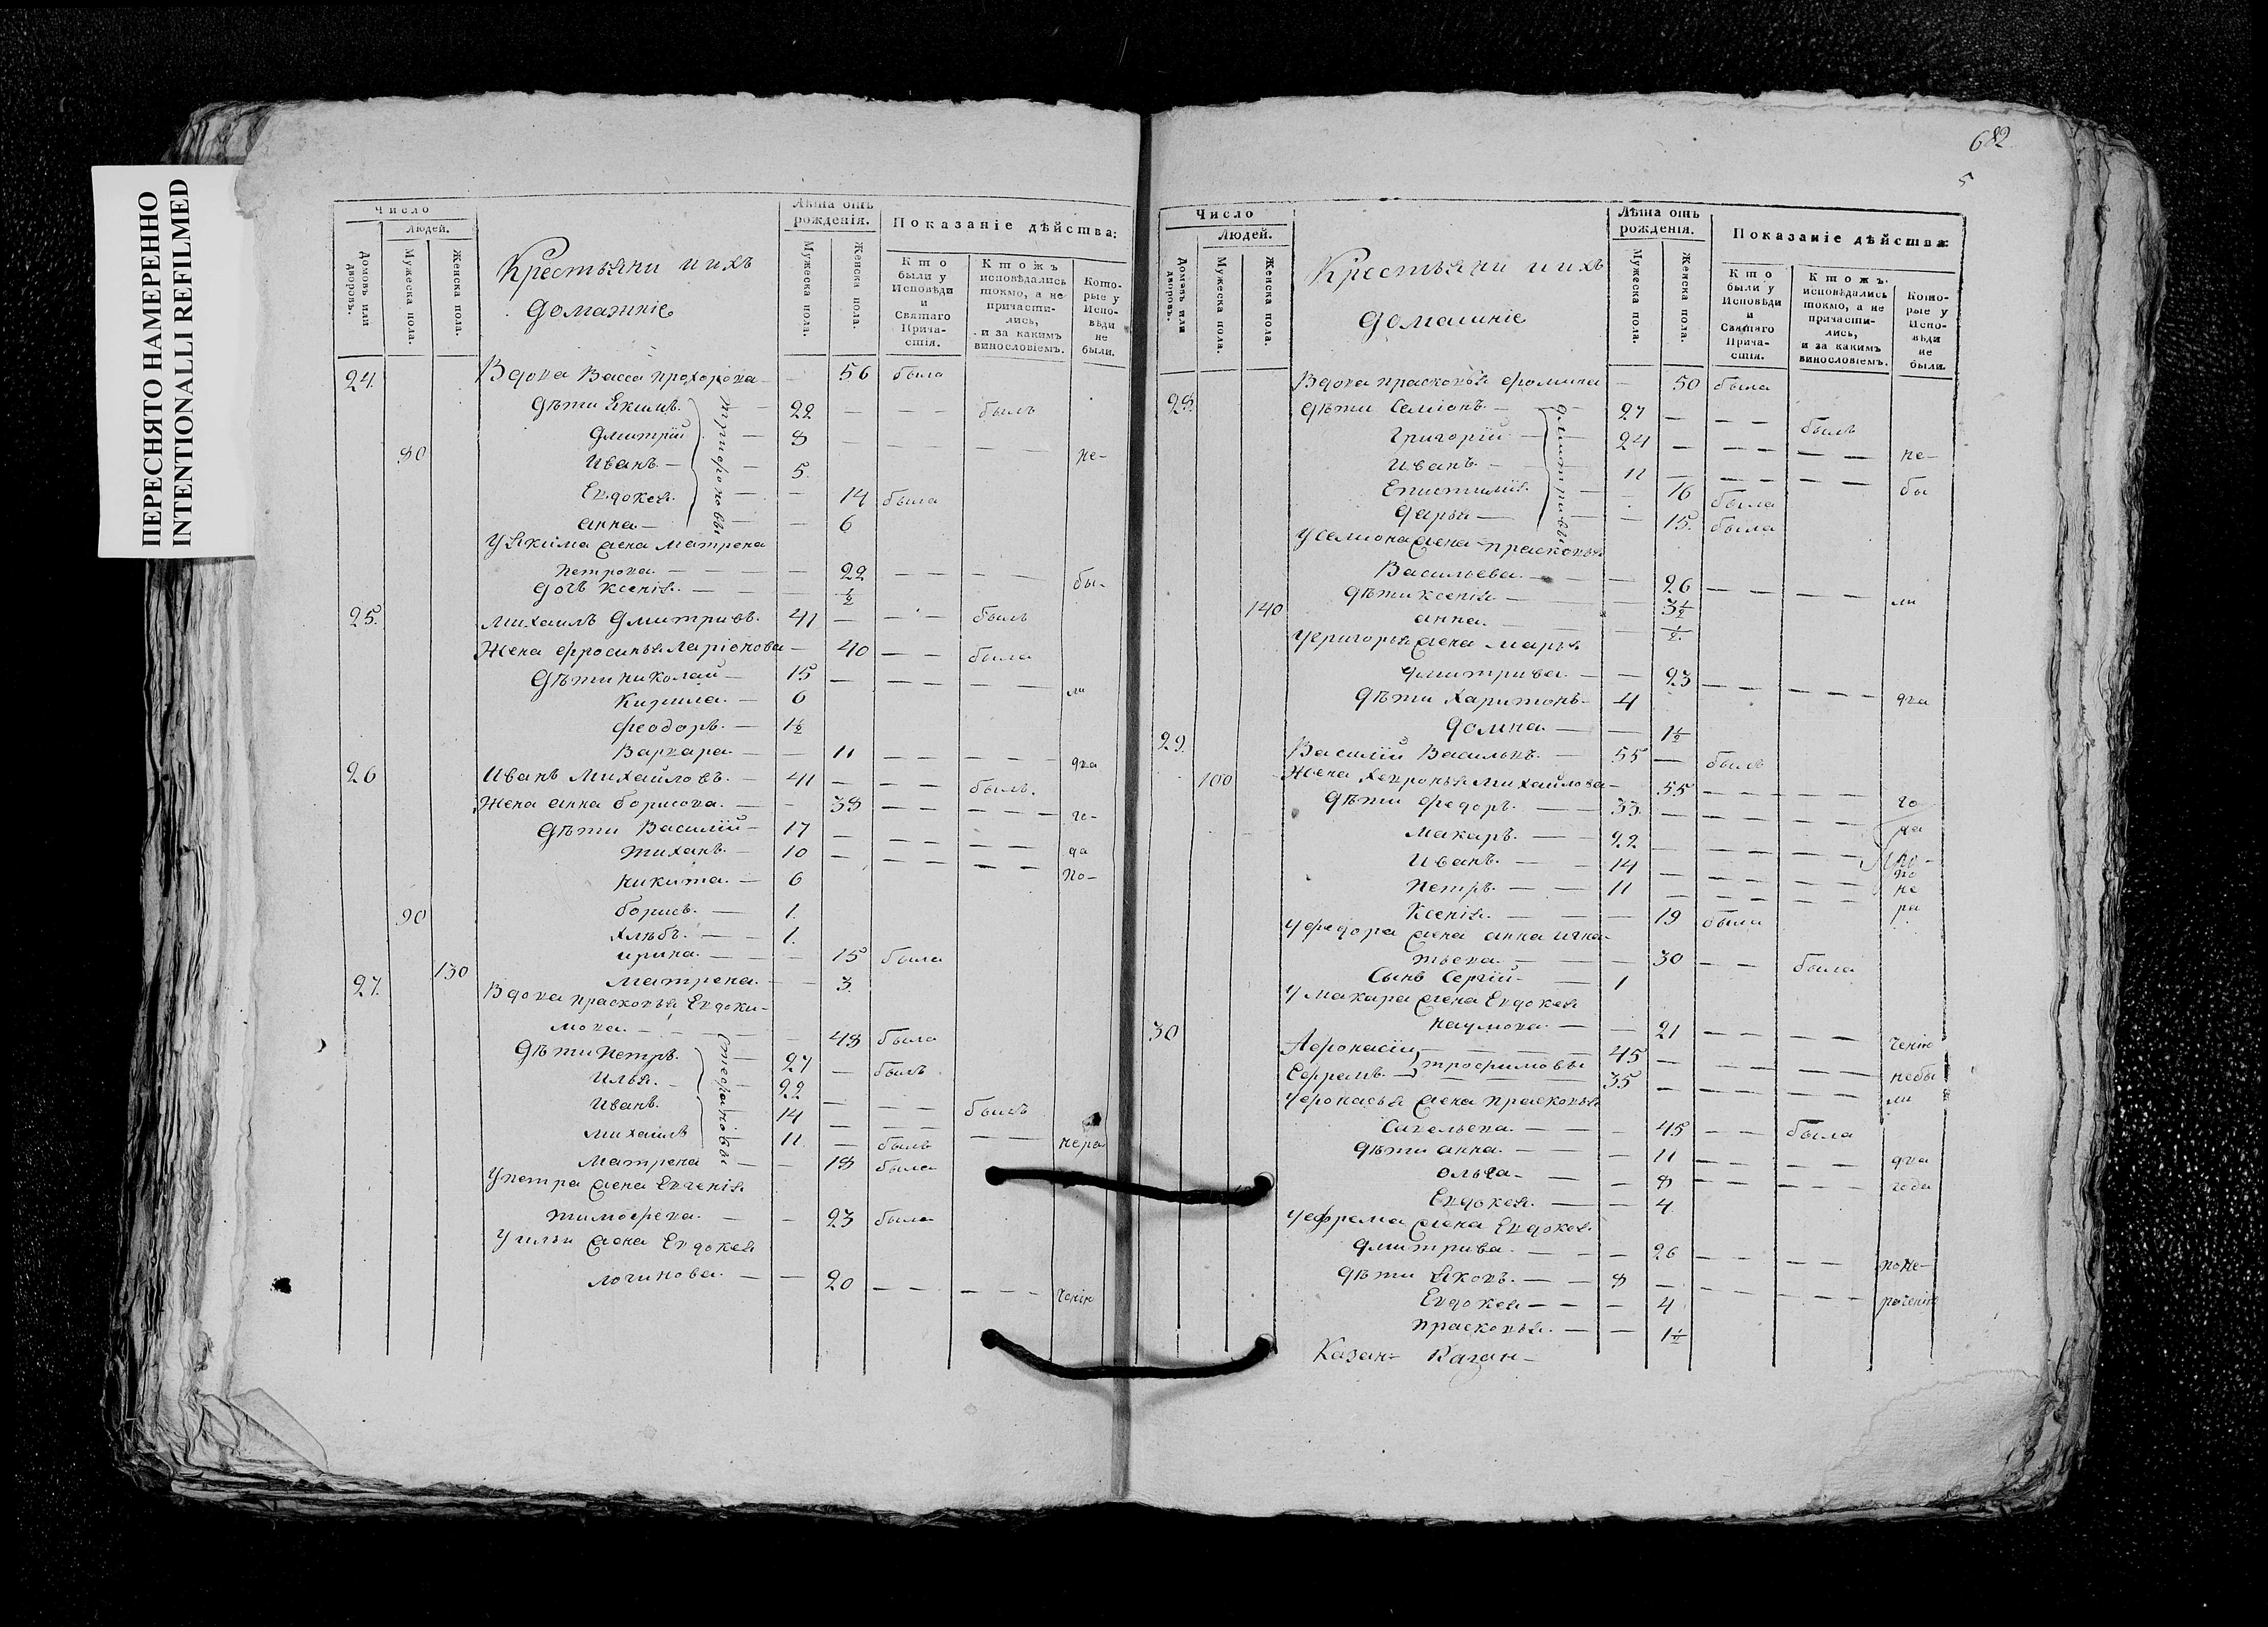 ПЕРЕСНЯТО НАМЕРЕННО
INTENTIONALLI REFILMED
Число
Людей.
Домовъ или дворовъ.
Мужеска пола.
Женска пола.
Крестьяни и ихъ
домашніе
Лѣта отъ рожденія.
Мужеска пола.
Женска пола.
Показаніе дѣйства:
Кто были у Исповѣди и Святаго Причастія.
Ктожъ исповѣдались токмо, а не причастились, и за какимъ винословіемъ.
Которые у Исповѣди не были.
24. Вдова Васса Прохорова — 56 была
Дѣти Якимъ. Трифоновы 22 — — — былъ
Дмитрій — 8
80 Иванъ — 5. не-
Евдокея. — 14 была
Анна — — 6
У Якима жена Матрена
Петрова. — — 22 — — — бы-
дочь Ксенія. — — 1/2
25. Михаилъ Дмитривъ. 41 — — — былъ
Жена Фросинья Ларіонова — 40 — — была
Дѣти Николай — 15 — — — — ли
Кирила. — 6
Феодоръ. — 1 1/2
Варвара. — — 11 — — — — два
26 Иванъ Михайловъ. — 41 — — — былъ.
Жена Анна Борисова. — — 38 — — — — го-
Дѣти Василій — 17 — — — — да
Тиханъ. — 10 — — — — по-
Никита. — 6
90 Борисъ. — 1.
Хлѣбъ. — 1.
Ирина. — — 15 была
130 Матрена. — — 3.
27. Вдова Прасковья Евдоки-
мова. — — — 48 была
Дѣти Петръ. Стефановы 27 — былъ
Илья. — 22 — — — былъ
Иванъ. 14 — — — — нера
Михаилъ 11 — былъ
Матрена — — 18 была
У Петра жена Евгенія
Тимофева. — — 23 была
У Ильи жена Евдокея
Логинова. — — 20 — — — — ченію
682
5
Число
Людей.
Домовъ или дворовъ.
Мужеска пола.
Женска пола.
Крестьяни и ихъ
домашніе
Лѣта отъ рожденія.
Мужеска пола.
Женска пола.
Показаніе дѣйства
Кто были у Исповѣди и Святаго Причастія.
Ктожъ исповѣдались токмо, а не причастились, и за какимъ винословіемъ.
Которые у Исповѣди не были.
Вдова Прасковья Фомина — 50 была
28. Дѣти Семіонъ. — Дмитривы 27 — — — былъ
Григорій — 24 — — — — не-
Иванъ. — 11 — — — — бы
Епистимія. — 16 была
Дарья — — 15. была
У Семіона жена Прасковья
Васильева. — — 26 — — — — ли
140 Дѣти Ксенія. — — 3 1/2
Анна. — — 1/2.
У Григорья жена Марья
Дмитрива. — — 23 — — — — два
Дѣти Харитонъ — 4
Домна. — — 1 1/2
29. Василій Васильивъ. — 55 — былъ
100 Жена Хевронья Михайлова — 55 — — — — го
Дѣти Федоръ. — 33. — — — — да
Макаръ. — — 22 — — — — по
Иванъ. — — 14 — — — — не
Петръ. — — 11 — — — — ра
Ксенія. — — — 19 была
У Федора жена Анна Игна-
тьева. — — 30 — — была
Сынъ Сергій — — 1
У Макара жена Евдокея
Наумова. — — 21 — — — — ченію
30 Афонасій Трофимовы 45 — — — — небы
Ефремъ. 35 — — — — ли
У Афонасья жена Прасковья
Савельева. — — 45 — — была
Дѣти Анна. — — — 11 — — — — два
Ольга — — — 8 — — — — года
Евдокея. — — 4
У Ефрема жена Евдокея.
Дмитрива. — — — 26 — — — — поне-
Дѣти Яковъ. — — 8 — — — — раченію
Евдокея — — — 4
Прасковья. — — 1 1/2
Казан- Казан-